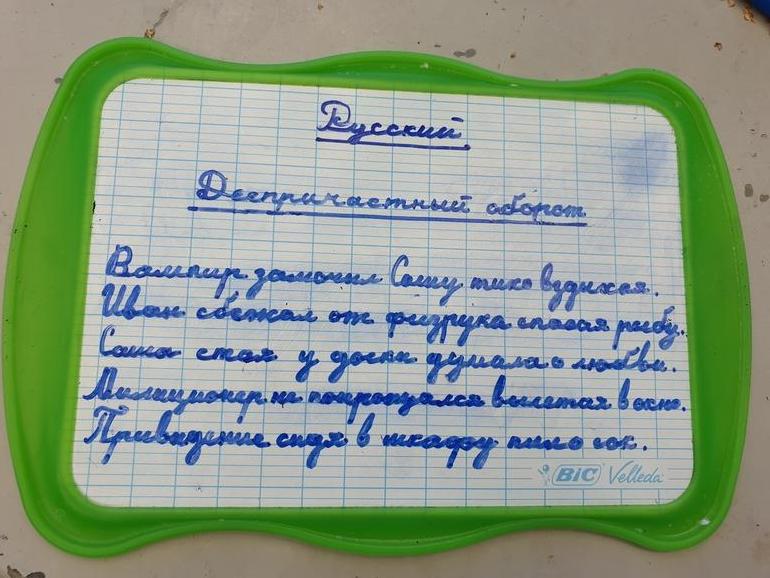 Русский
Деепричастный оборот
Вампир замочил Сашу тихо вздыхая.
Иван сбежал от физрука спасая рыбу.
Саша стоя у доски думала о любви.
Милиционер не попрощался вылетая в окно.
Привидение сидя в шкафу пило сок.
BIC Velleda